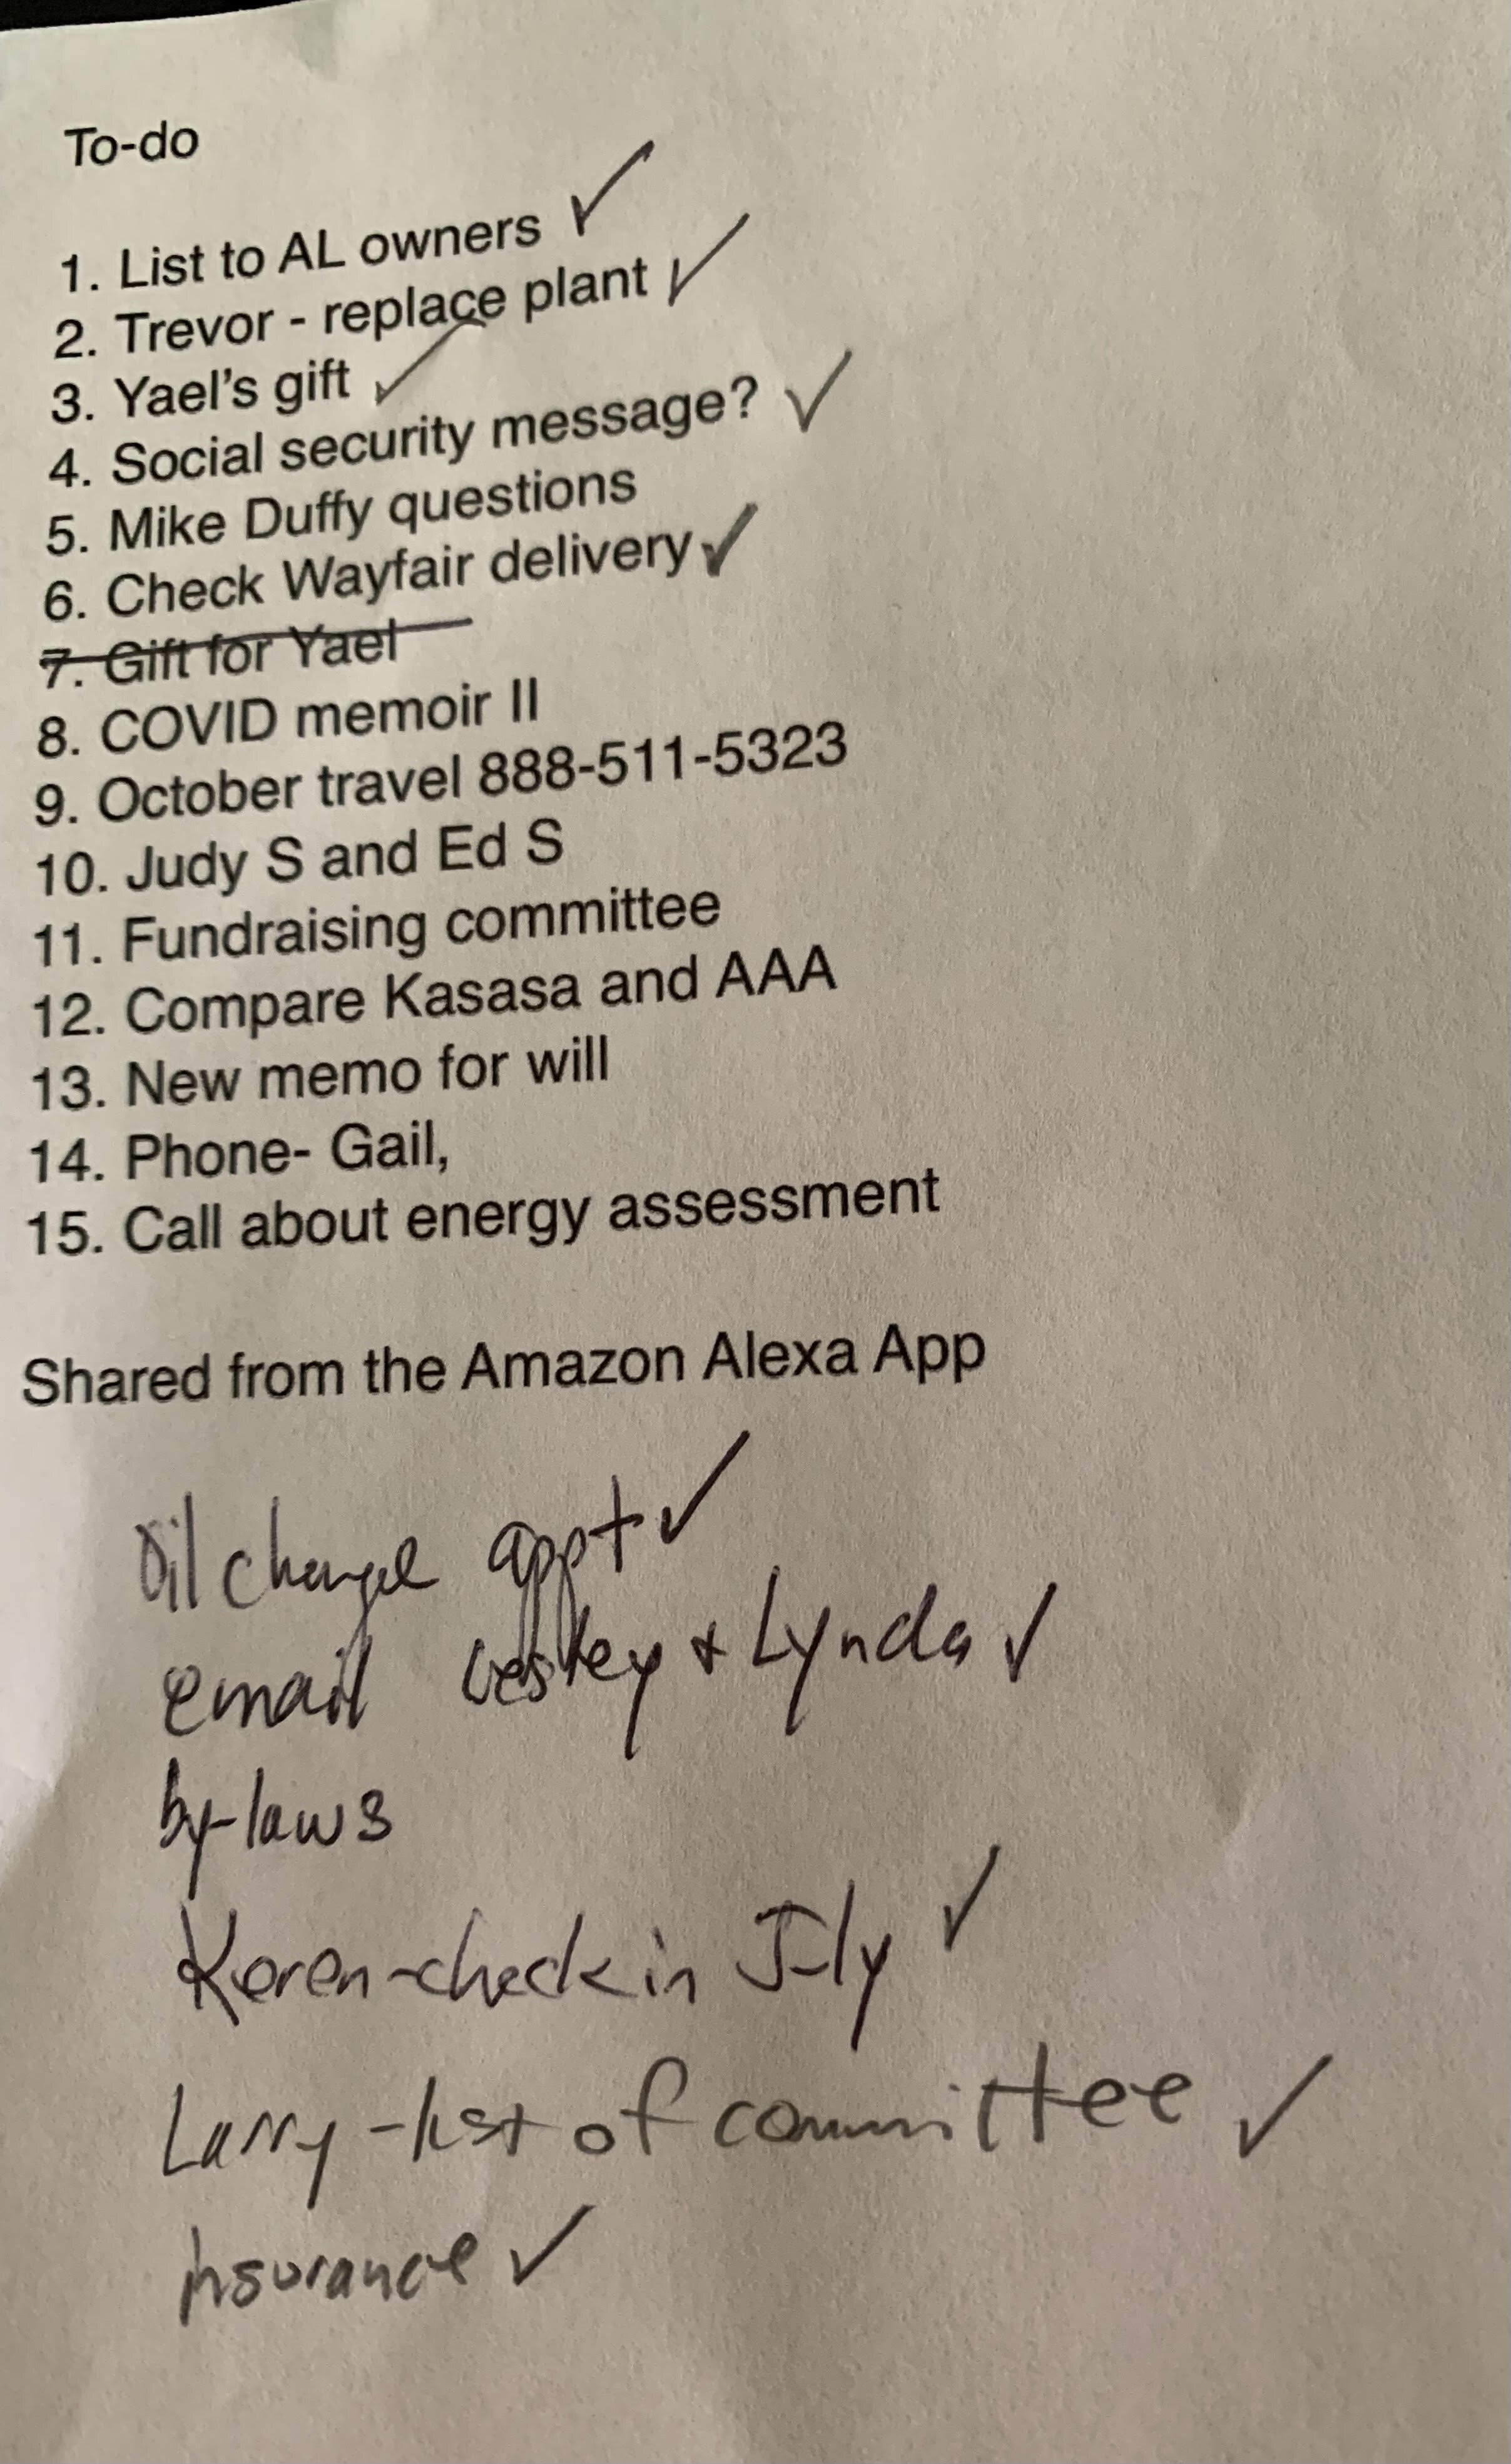 To-do
1. List to AL owners ✓
2. Trevor - replace plant ✓
3. Yael's gift ✓
4. Social security message? ✓
5. Mike Duffy questions
6. Check Wayfair delivery ✓
7. Gift for Yael
8. COVID memoir II
9. October travel 888-511-5323
10. Judy S and Ed S
11. Fundraising committee
12. Compare Kasasa and AAA
13. New memo for will
14. Phone- Gail,
15. Call about energy assessment
Shared from the Amazon Alexa App
Oil change appt ✓
email & Lynda ✓
by-laws
Keren-check in July ✓
Larry-list of committee ✓
insurance ✓